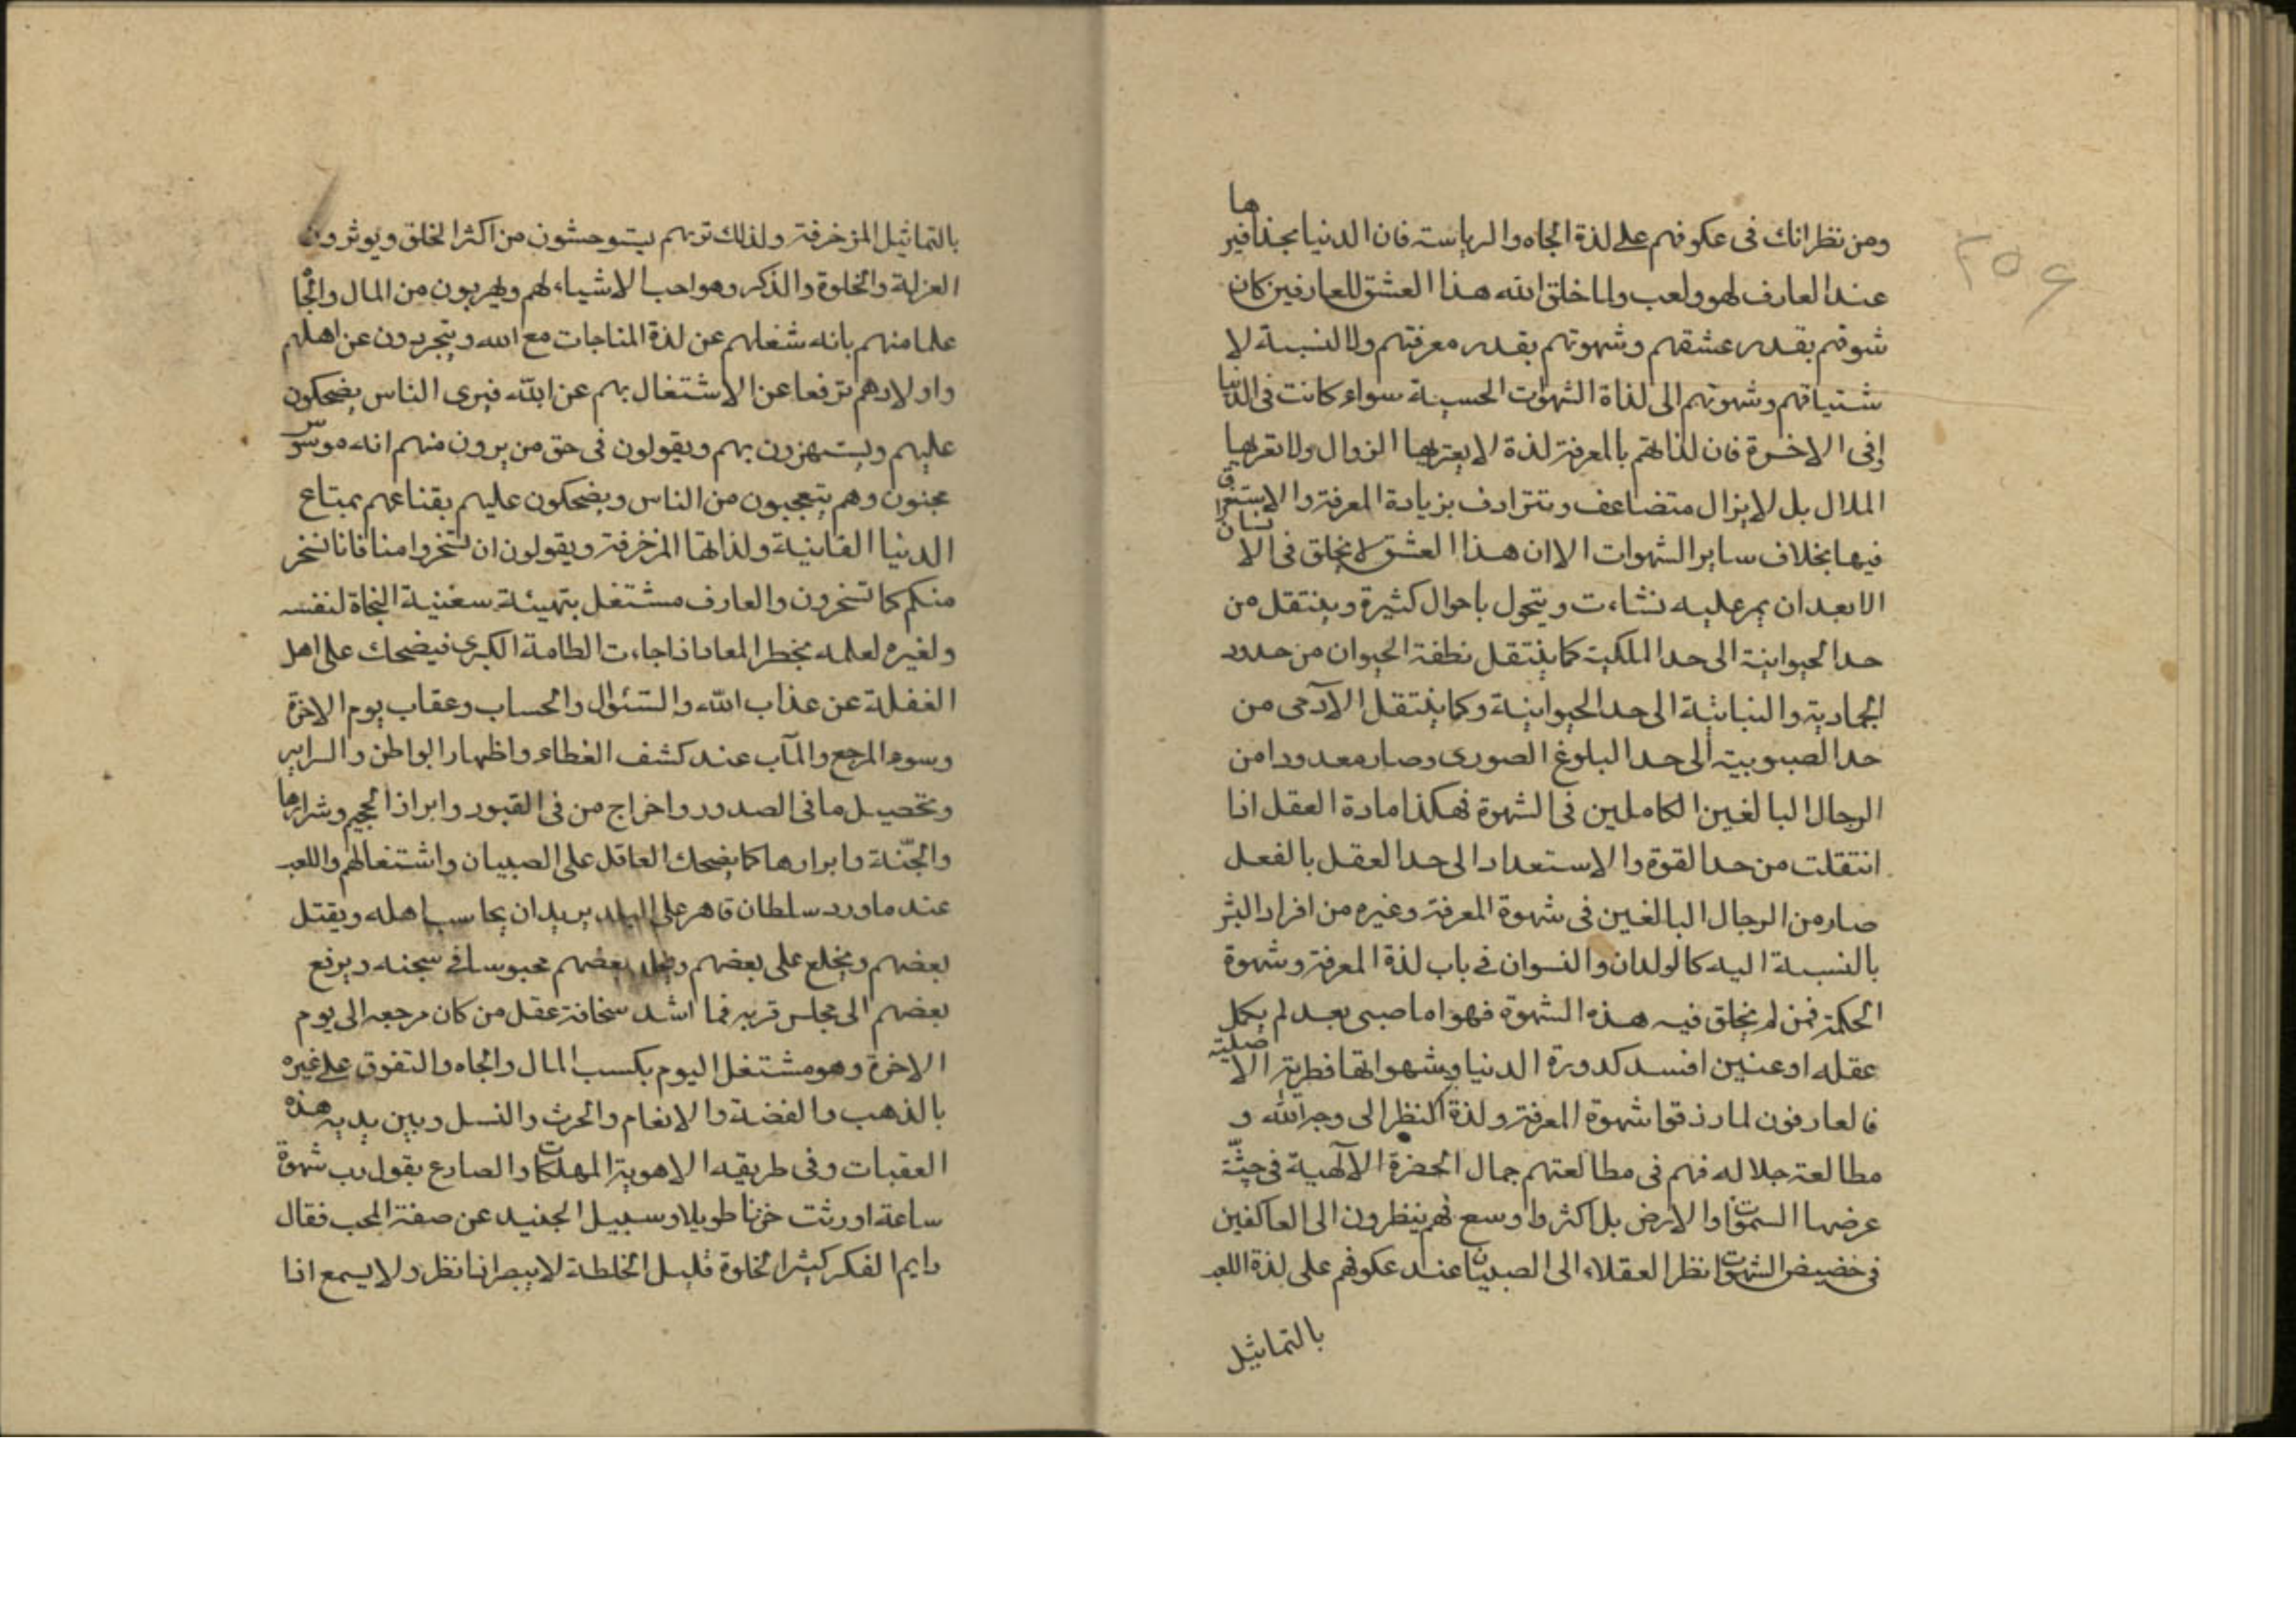 ومن نظرائك في عكوفهم على لذة الجاه والرياسته فان الدنيا بحذافيرها
عند العارف لهو ولعب ولما خلق الله هذا العشق للعارفين كان
شوقهم بقدر عشقهم وشهوتهم بقدر معرفتهم ولا لنسبة لا
شتياقهم وشهوتهم الى لذاة الشهوات الحسية سواء كانت في الدنيا
او في الاخرة فان لذاتهم بالمعرفة لذة لا يعتريها الزوال ولا تعريها
الملال بل لا يزال متضاعف وتترادف بزيادة المعرفة والاستغراق
فيها بخلاف ساير الشهوات الا ان هذا العشق لا يخلق في الانسان
الا بعد ان يمر عليه نشاءت ويتحول باحوال كثيرة وينتقل من
حد الحيوانية الى حد الملكية كما ينتقل نطفة الحيوان من حدود
الجمادية والنباتية الى حد الحيوانية وكما ينتقل الآدمى من
حد الصبوبية الى حد البلوغ الصورى وصار معدودا من
الرجال البالغين الكاملين في الشهوة فهكذا مادة العقل اذا
انتقلت من حد القوة والاستعداد الى حد العقل بالفعل
صار من الرجال البالغين في شهوة المعرفة وغيره من افراد البشر
بالنسبة اليه كالولدان والنسوان في باب لذة المعرفة وشهوة
الحكمة فمن لم يخلق فيه هذه الشهوة فهو اما صبى بعد لم يكمل
عقله او عنين افسد كدورة الدنيا وشهواتها فطرته الاصلية
فالعارفون لما رزقوا شهوة المعرفة ولذة النظر الى وجه الله و
مطالعة جلاله فهم في مطالعتهم جمال الحضرة الآلهية في جنّة
عرضها السموات والارض بل اكثر واوسع فهم ينظرون الى العاكفين
في خضيض الشهوات نظر العقلاء الى الصبيان عند عكوفهم على لذة اللعب
بالتماثيل
٢٥٤
بالتماثيل المزخرفة ولذلك تريهم يستوحشون من اكثر الخلق ويوثرون
العزلة والخلوة والذكر وهو احب الاشياء لهم ويهربون من المال والجاه
علما منهم بانه شغلهم عن لذة المناجات مع الله ويتجردون عن اهلهم
واولادهم ترفعا عن الاشتغال بهم عن الله فيرى الناس يضحكون
عليهم ويستهزون بهم ويقولون في حق من يرون منهم انه موسوس
مجنون وهم يتعجبون من الناس ويضحكون عليهم بقناعهم بمتاع
الدنيا الفانية ولذاتها المزخرفة ويقولون ان تسخروا منا فانا نسخر
منكم كما تسخرون والعارف مشتغل بتهيئة سفينة النجاة لنفسه
ولغيره لعلمه بخطر المعاد فاذا جاءت الطامة الكبرى فيضحك على اهل
الغفلة عن عذاب الله والسئوال والحساب وعقاب يوم الاخرة
وسوء المرجع والمآب عند كشف الغطاء واظهار البواطن والسراير
وتحصيل ما في الصدور واخراج من في القبور وابراز الجحيم وشرارها
والجنّة وابرارها كما يضحك العاقل على الصبيان واشتغالهم واللعب
عند ما ورد سلطان قاهر على البلد يريد ان يحاسب اهله ويقتل
بعضهم ويخلع على بعضهم بعضهم محبوسا في سجنه ويرفع
بعضهم الى مجلس قربه فما اشد سخافة عقل من كان مرجعه الى يوم
الاخرة وهو مشتغل اليوم بكسب المال والجاه والتفوق على غيره
بالذهب والفضة والانعام والحرث والنسل وبين يديه هذه
العقبات وفى طريقه الاهوية المهلكات والصادع يقول رب شهوة
ساعة اورثت حزنا طويلا وسبيل الجنيد عن صفة المحب فقال
دايم الفكر كيثر الخلوة قليل الخلطة لا يبصر اذا نظر ولا يسمع اذا